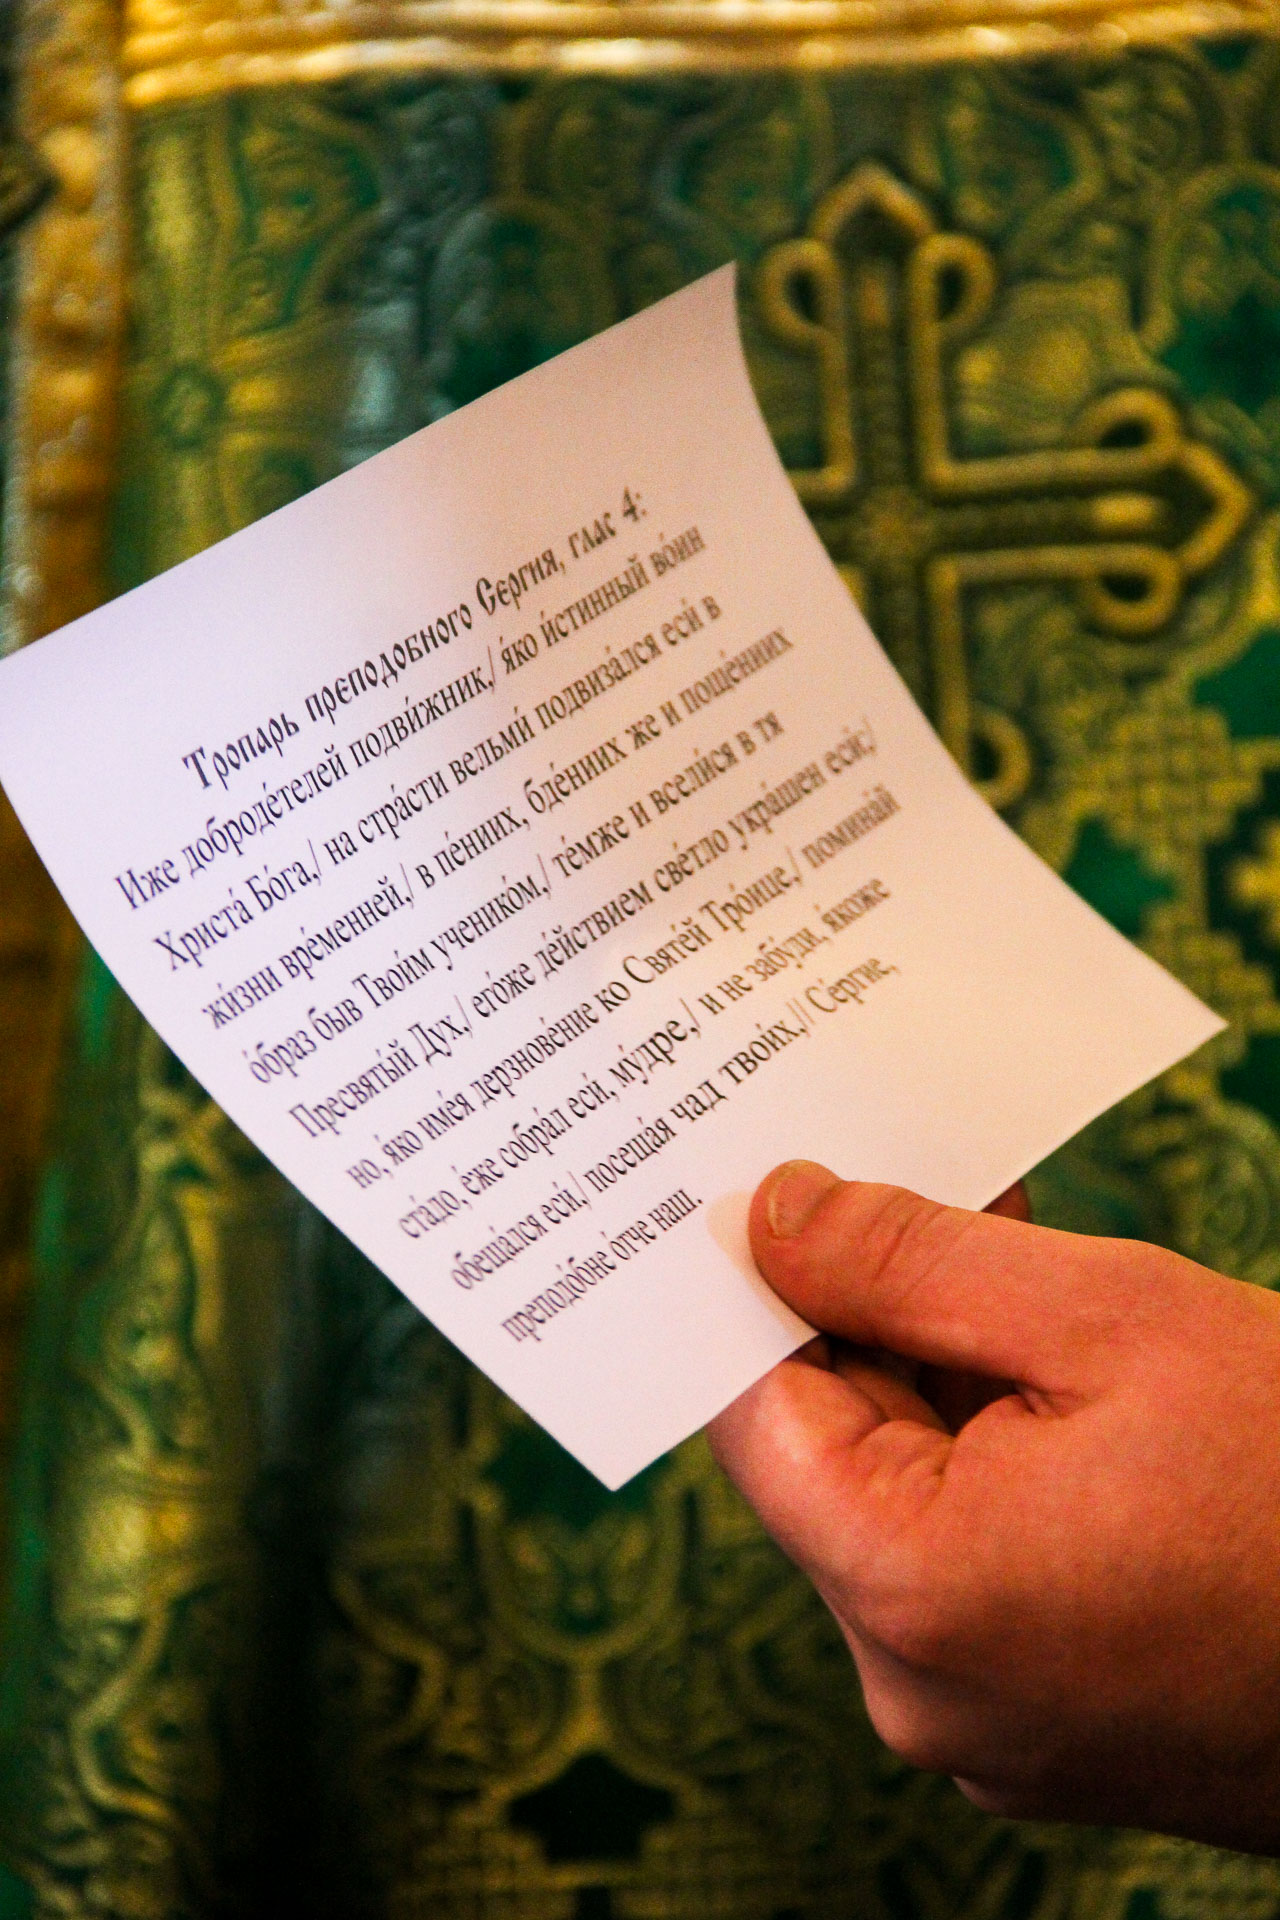 Тропарь преподобного Сергия, глас 4:
Иже доброде́телей подви́жник,/ я́ко и́стинный во́ин
Христа́ Бо́га,/ на стра́сти вельми́ подвиза́лся еси́ в
жи́зни вре́менней,/ в пе́ниих, бде́нних же и поще́нних
о́браз быв Твои́м ученико́м,/ те́мже и всели́ся в тя
Пресвяты́й Дух,/ его́же де́йствием све́тло укра́шен еси́;/
но, я́ко име́я дерзнове́ние ко Святе́й Тро́ице,/ помина́й
ста́до, е́же собра́л еси́, му́дре,/ и не забу́ди, я́коже
обеща́лся еси́,/ посеща́я чад твои́х,// Се́ргие,
преподо́бне о́тче наш.